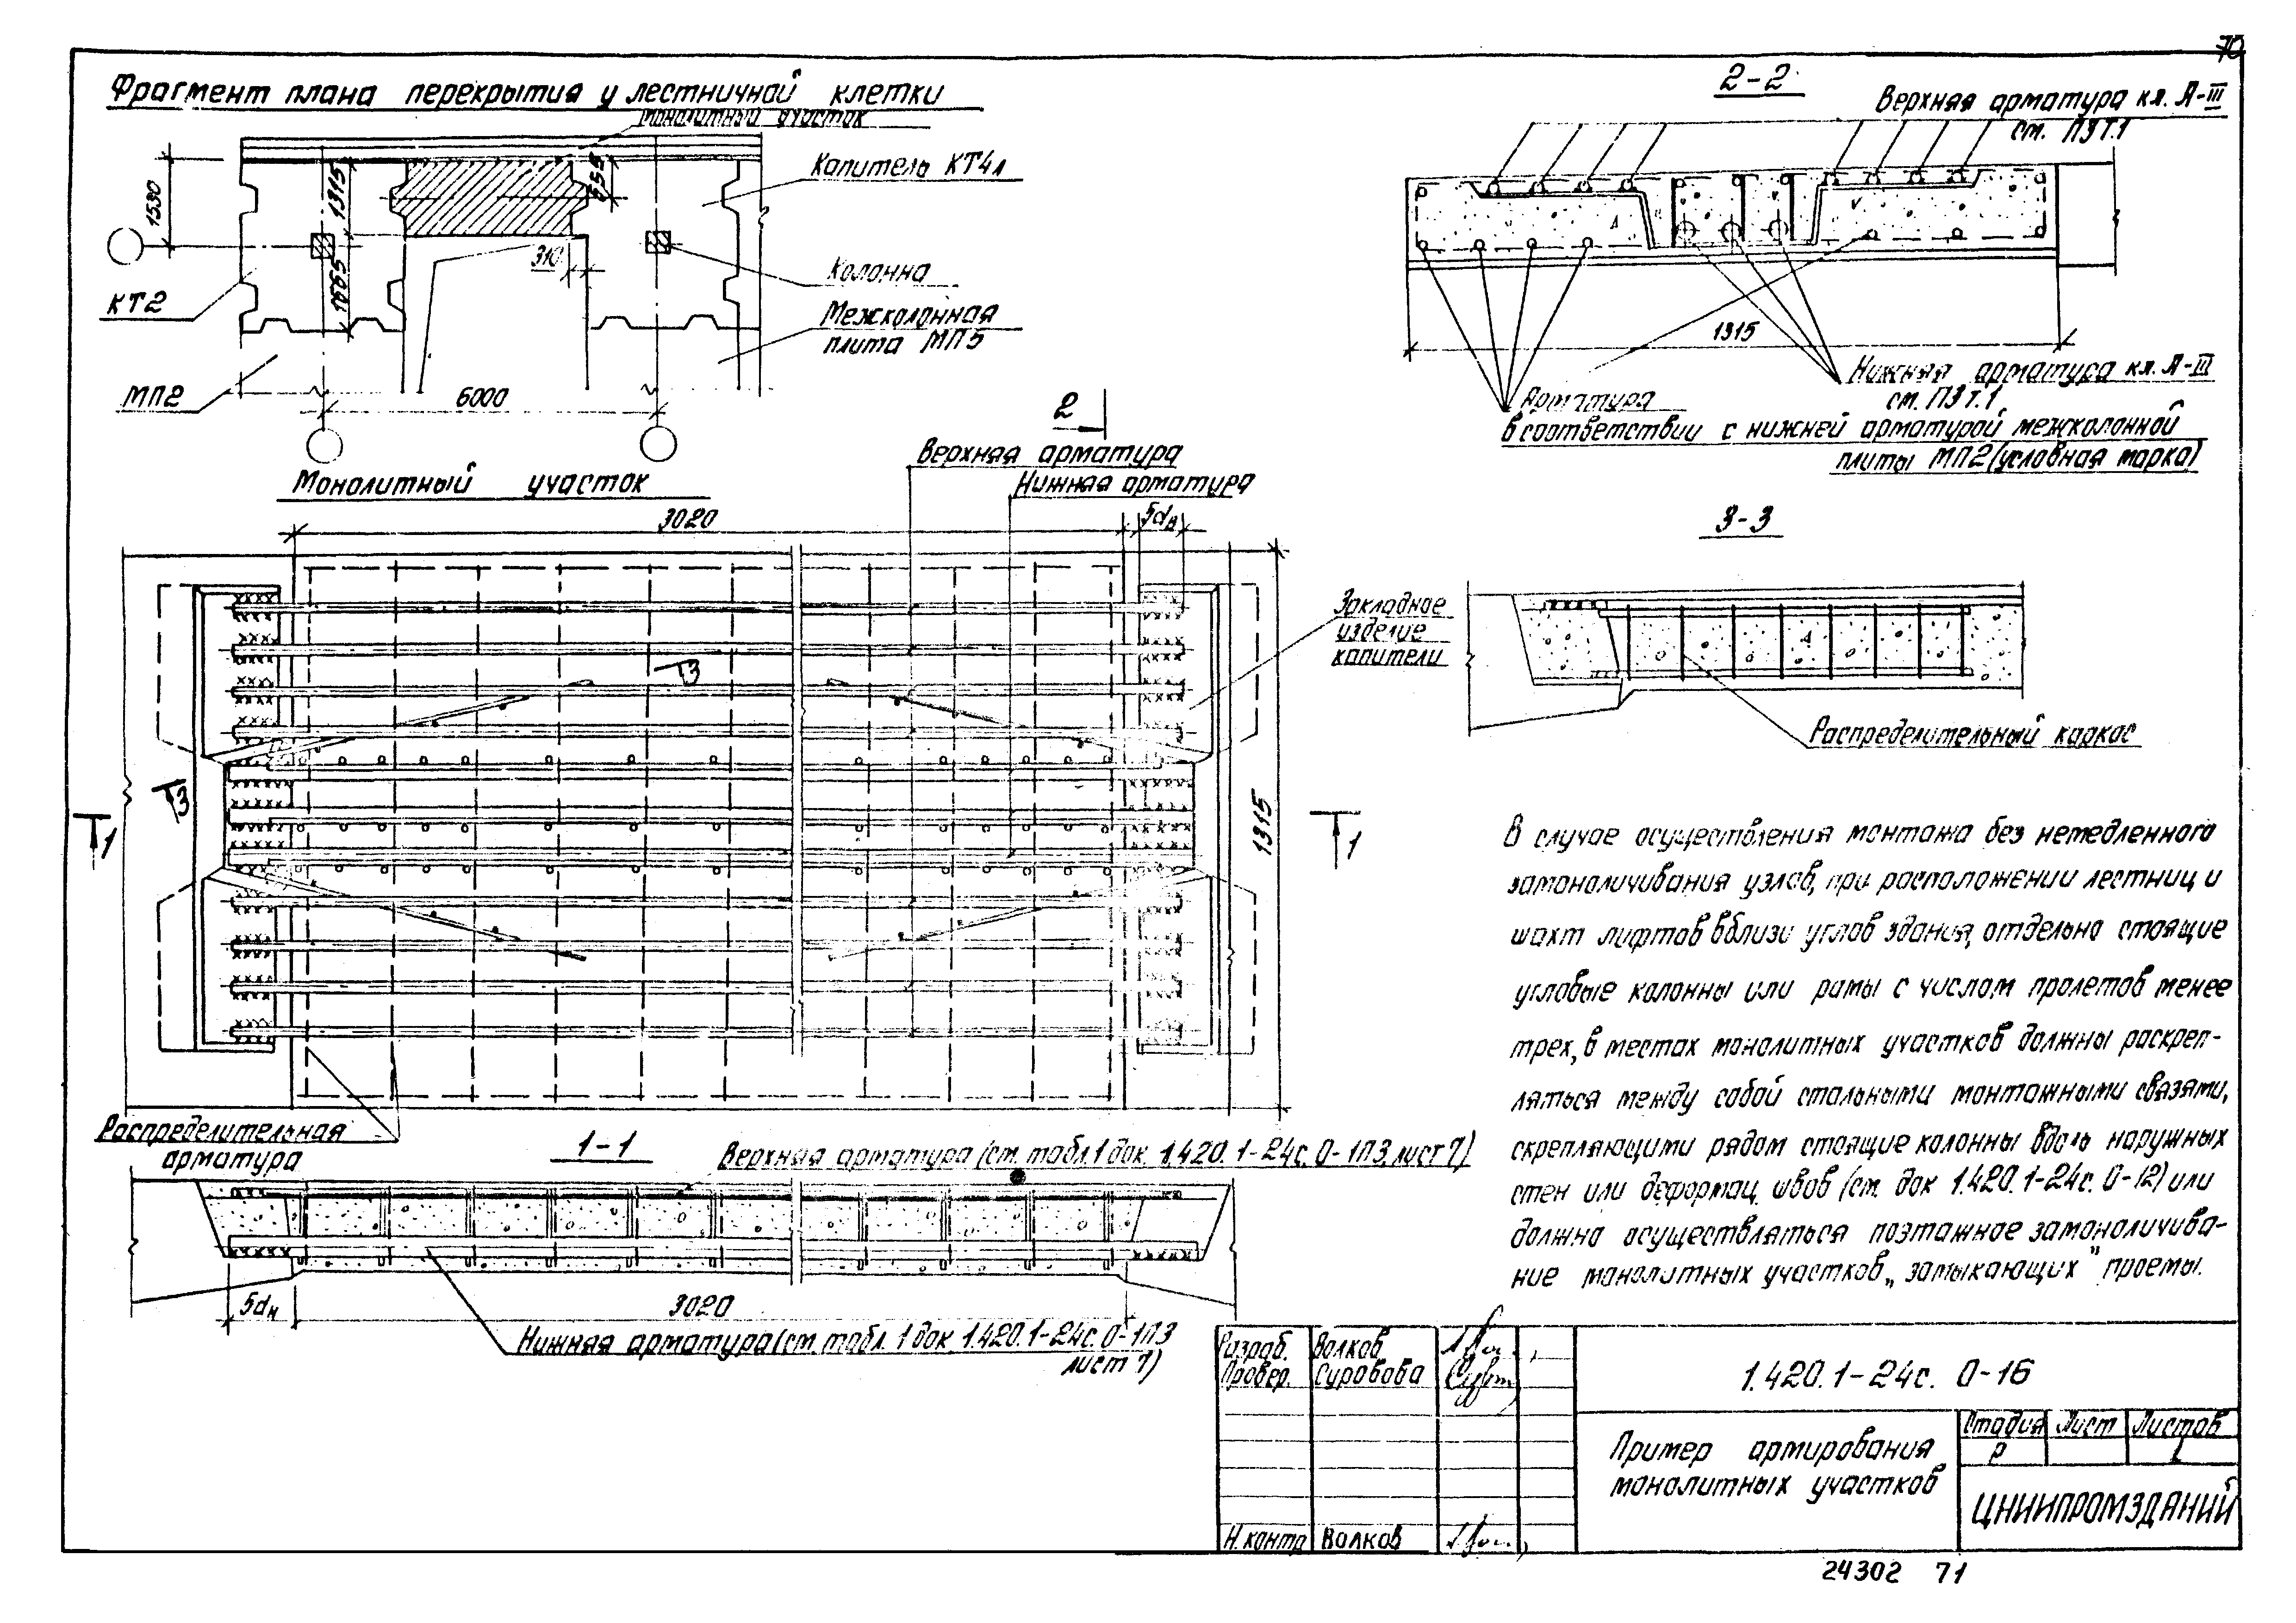 70
Фрагмент плана перекрытия у лестничной клетки
монолитный участок
1530
1315
1665
655
310
Капитель КТ4л
Колонна
КТ2
Межколонная
плита МП5
МП2
6000
2-2
Верхняя арматура кл. А-III
см. ПЗ Т.1
1315
Нижняя арматура кл. А-III
см. ПЗ Т.1
Арматура
в соответствии с нижней арматурой межколонной
плиты МП2 (условная марка)
Монолитный участок
2
Верхняя арматура
Нижняя арматура
3020
5dв
3
3
1
1
1315
Закладное
изделие
капители
Распределительная
арматура
3-3
Распределительный каркас
1-1
Верхняя арматура (см. табл. 1 док. 1.420.1-24с. 0-1ПЗ, лист 7)
5dн
3020
Нижняя арматура (см. табл. 1 док. 1.420.1-24с. 0-1ПЗ
лист 7)
В случае осуществления монтажа без немедленного
замоноличивания узлов, при расположении лестниц и
шахт лифтов вблизи углов здания, отдельно стоящие
угловые колонны или рамы с числом пролетов менее
трех, в местах монолитных участков должны раскреп-
ляться между собой стальными монтажными связями,
скрепляющими рядом стоящие колонны вдоль наружных
стен или деформац. швов (см. док 1.420.1-24с. 0-12) или
должно осуществляться поэтажное замоноличива-
ние монолитных участков, „замыкающих" проемы.
Разраб. Волков
Провер. Суровова
Н. контр Волков
1.420.1-24с. 0-16
Пример армирования
монолитных участков
Стадия Лист Листов
Р 1
ЦНИИПРОМЗДАНИЙ
24302 71